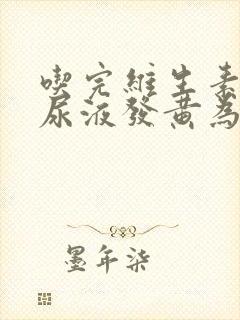 喫完維生素
尿液發黃為
墨年柒